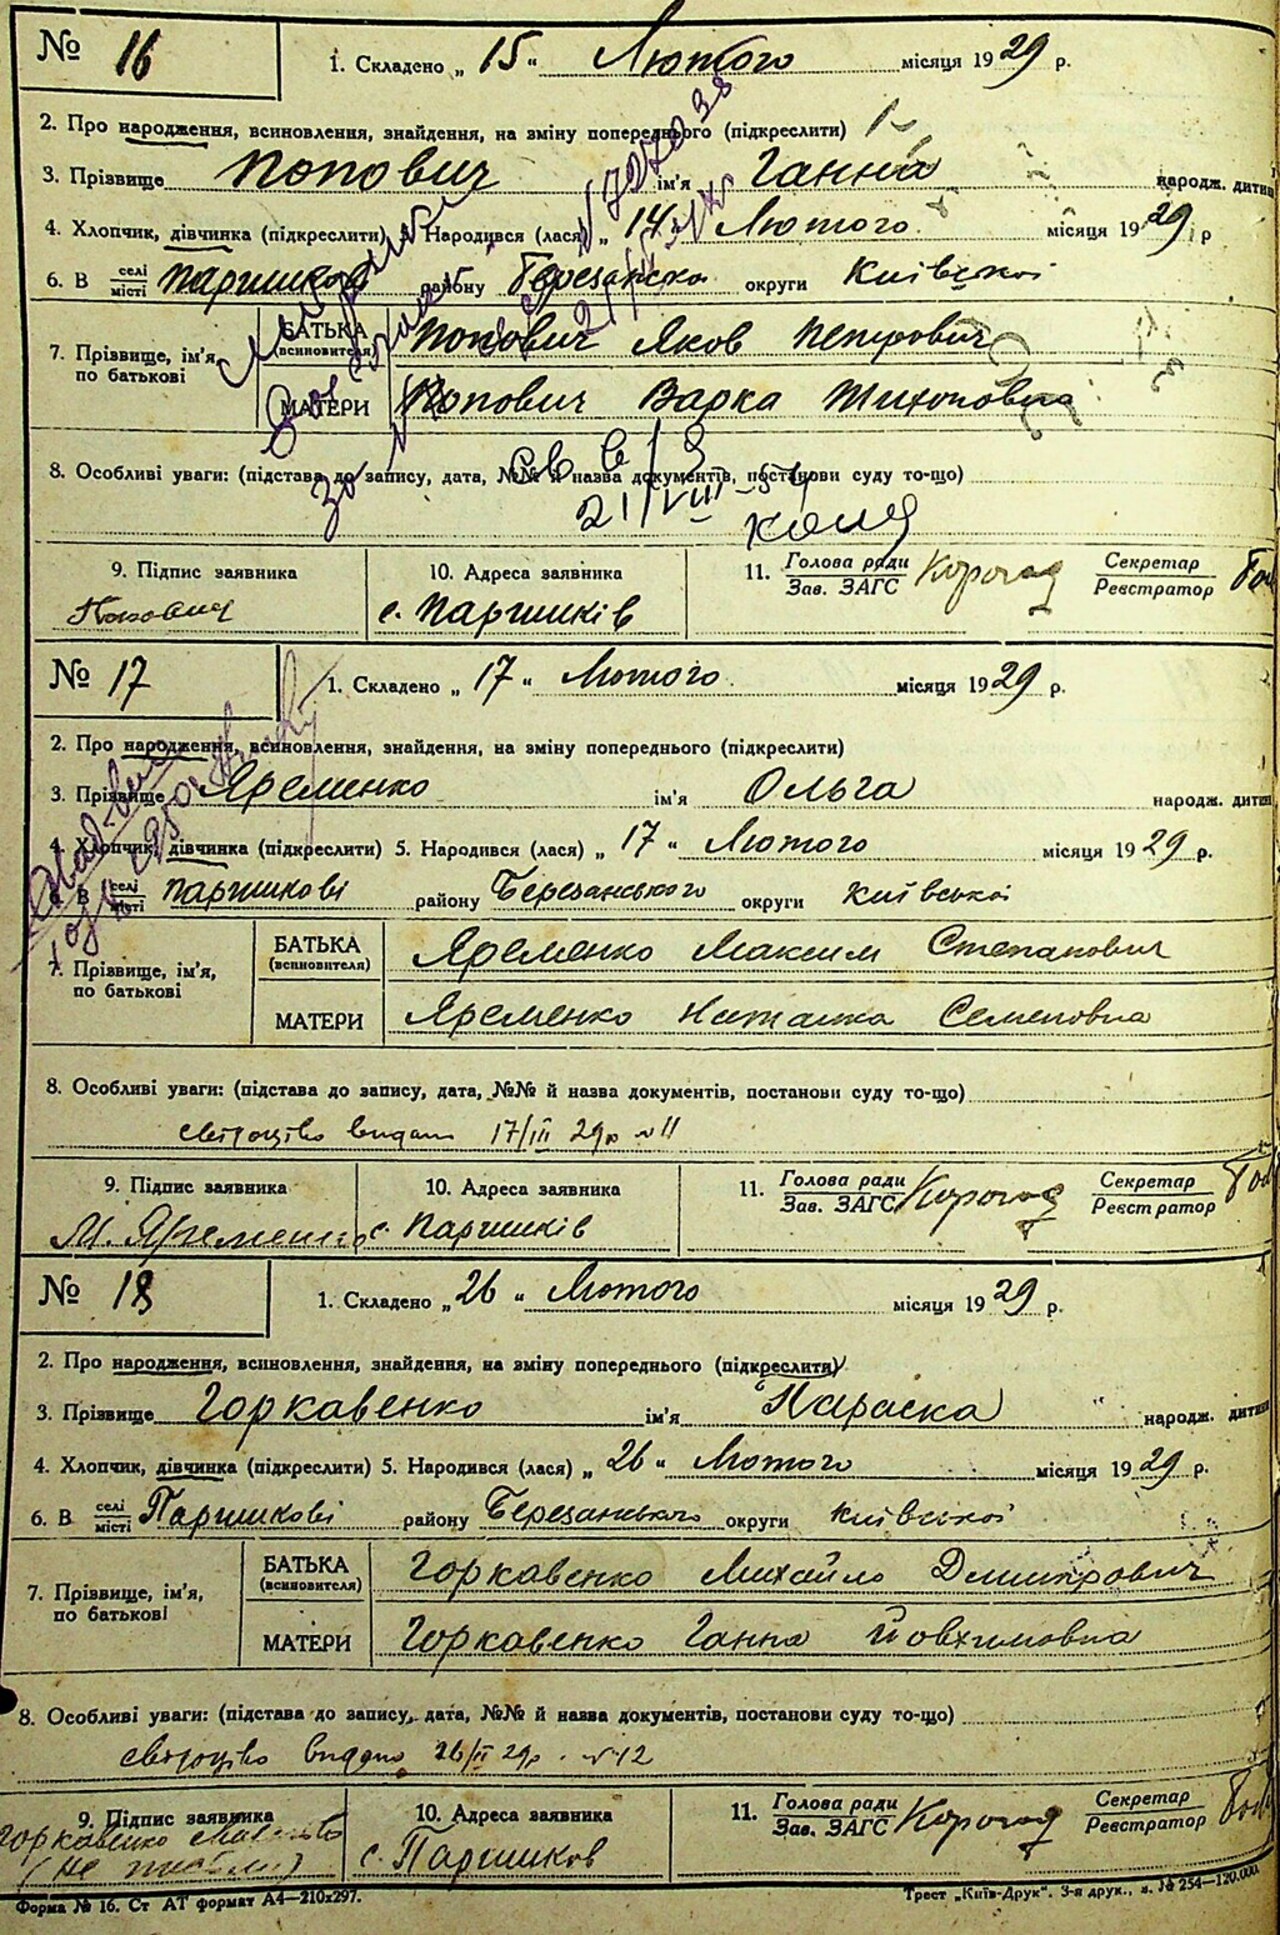 № 16
1. Складено „15“ Лютого місяця 1929 р.
2. Про народження, всиновлення, знайдення, на зміну попереднього (підкреслити)
3. Прізвище Попович ім'я Ганна народж. дитини
4. Хлопчик, дівчинка (підкреслити) Народився (лася) „14“ Лютого місяця 1929 р
6. В селі/місті Паришкові району Березанско округи Київської
7. Прізвище, ім'я, по батькові
БАТЬКА (всиновителя) Попович Яков Петрович
МАТЕРИ Попович Варка Тихоновна
8. Особливі уваги: (підстава до запису, дата, №№ й назва документів, постанови суду то-що)
21/VIII-54
9. Підпис заявника
Попович
10. Адреса заявника
с. Паришків
11. Голова ради/Зав. ЗАГС Корогод Секретар/Реєстратор
№ 17
1. Складено „17“ Лютого місяця 1929 р.
2. Про народження, всиновлення, знайдення, на зміну попереднього (підкреслити)
3. Прізвище Яременко ім'я Ольга народж. дитини
4. Хлопчик, дівчинка (підкреслити) 5. Народився (лася) „17“ Лютого місяця 1929 р.
6. В селі/місті Паришкові району Березанського округи Київської
7. Прізвище, ім'я, по батькові
БАТЬКА (всиновителя) Яременко Максим Степанович
МАТЕРИ Яременко Наталка Семеновна
8. Особливі уваги: (підстава до запису, дата, №№ й назва документів, постанови суду то-що)
свідоцтво видано 17/III 29р №11
9. Підпис заявника
М. Яременко
10. Адреса заявника
с. Паришків
11. Голова ради/Зав. ЗАГС Корогод Секретар/Реєстратор
№ 18
1. Складено „26“ Лютого місяця 1929 р.
2. Про народження, всиновлення, знайдення, на зміну попереднього (підкреслити)
3. Прізвище Горкавенко ім'я Параска народж. дитини
4. Хлопчик, дівчинка (підкреслити) 5. Народився (лася) „26“ Лютого місяця 1929 р.
6. В селі/місті Паришкові району Березанського округи Київської
7. Прізвище, ім'я, по батькові
БАТЬКА (всиновителя) Горкавенко Михайло Дмитрович
МАТЕРИ Горкавенко Ганна Йовхимовна
8. Особливі уваги: (підстава до запису, дата, №№ й назва документів, постанови суду то-що)
свідоцтво видано 26/II 29р. №12
9. Підпис заявника
Горкавенко
10. Адреса заявника
с. Паришков
11. Голова ради/Зав. ЗАГС Корогод Секретар/Реєстратор
Форма № 16. Ст АТ формат А4—210х297.
Трест „Київ-Друк“. 3-я друк., з. № 254—120.000